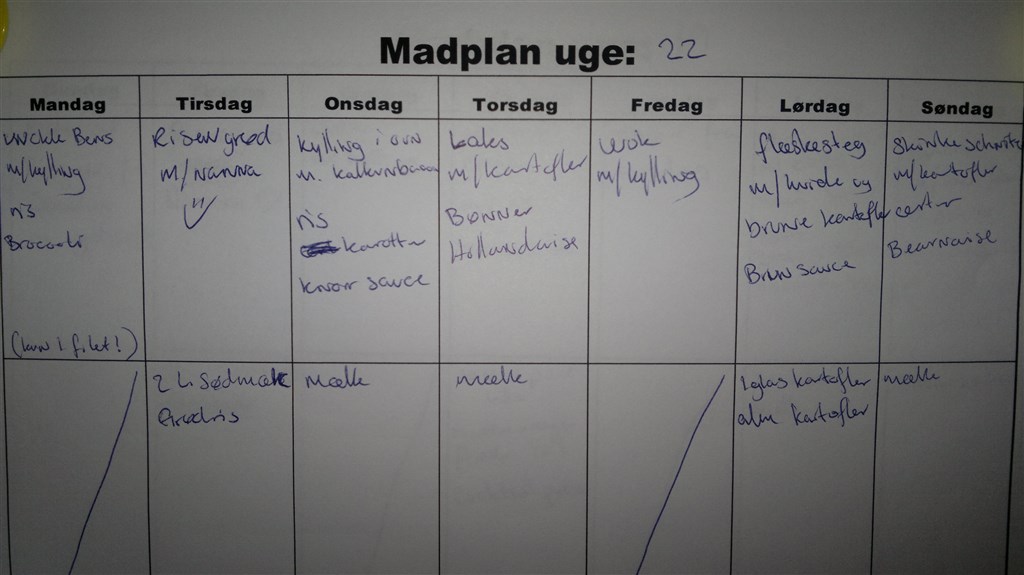 Madplan uge: 22
Mandag
Tirsdag
Onsdag
Torsdag
Fredag
Lørdag
Søndag
unckle Bens
m/kylling
ris
Brocooli
(kun 1 filet!)
Risengrød
m/nanna
kylling i ovn
m.
ris
karotter
knorr sauce
Laks
m/kartofler
Bønner
Hollansdaise
wok
m/kylling
flæskesteg
m/hvide og
brune kartofler
Brun sauce
Skinkeschnitz
m/kartofler
ærter
Bearnaise
2 L. Sødmælk
Grødris
mælk
mælk
1 glas kartofler
alm kartofler
mælk